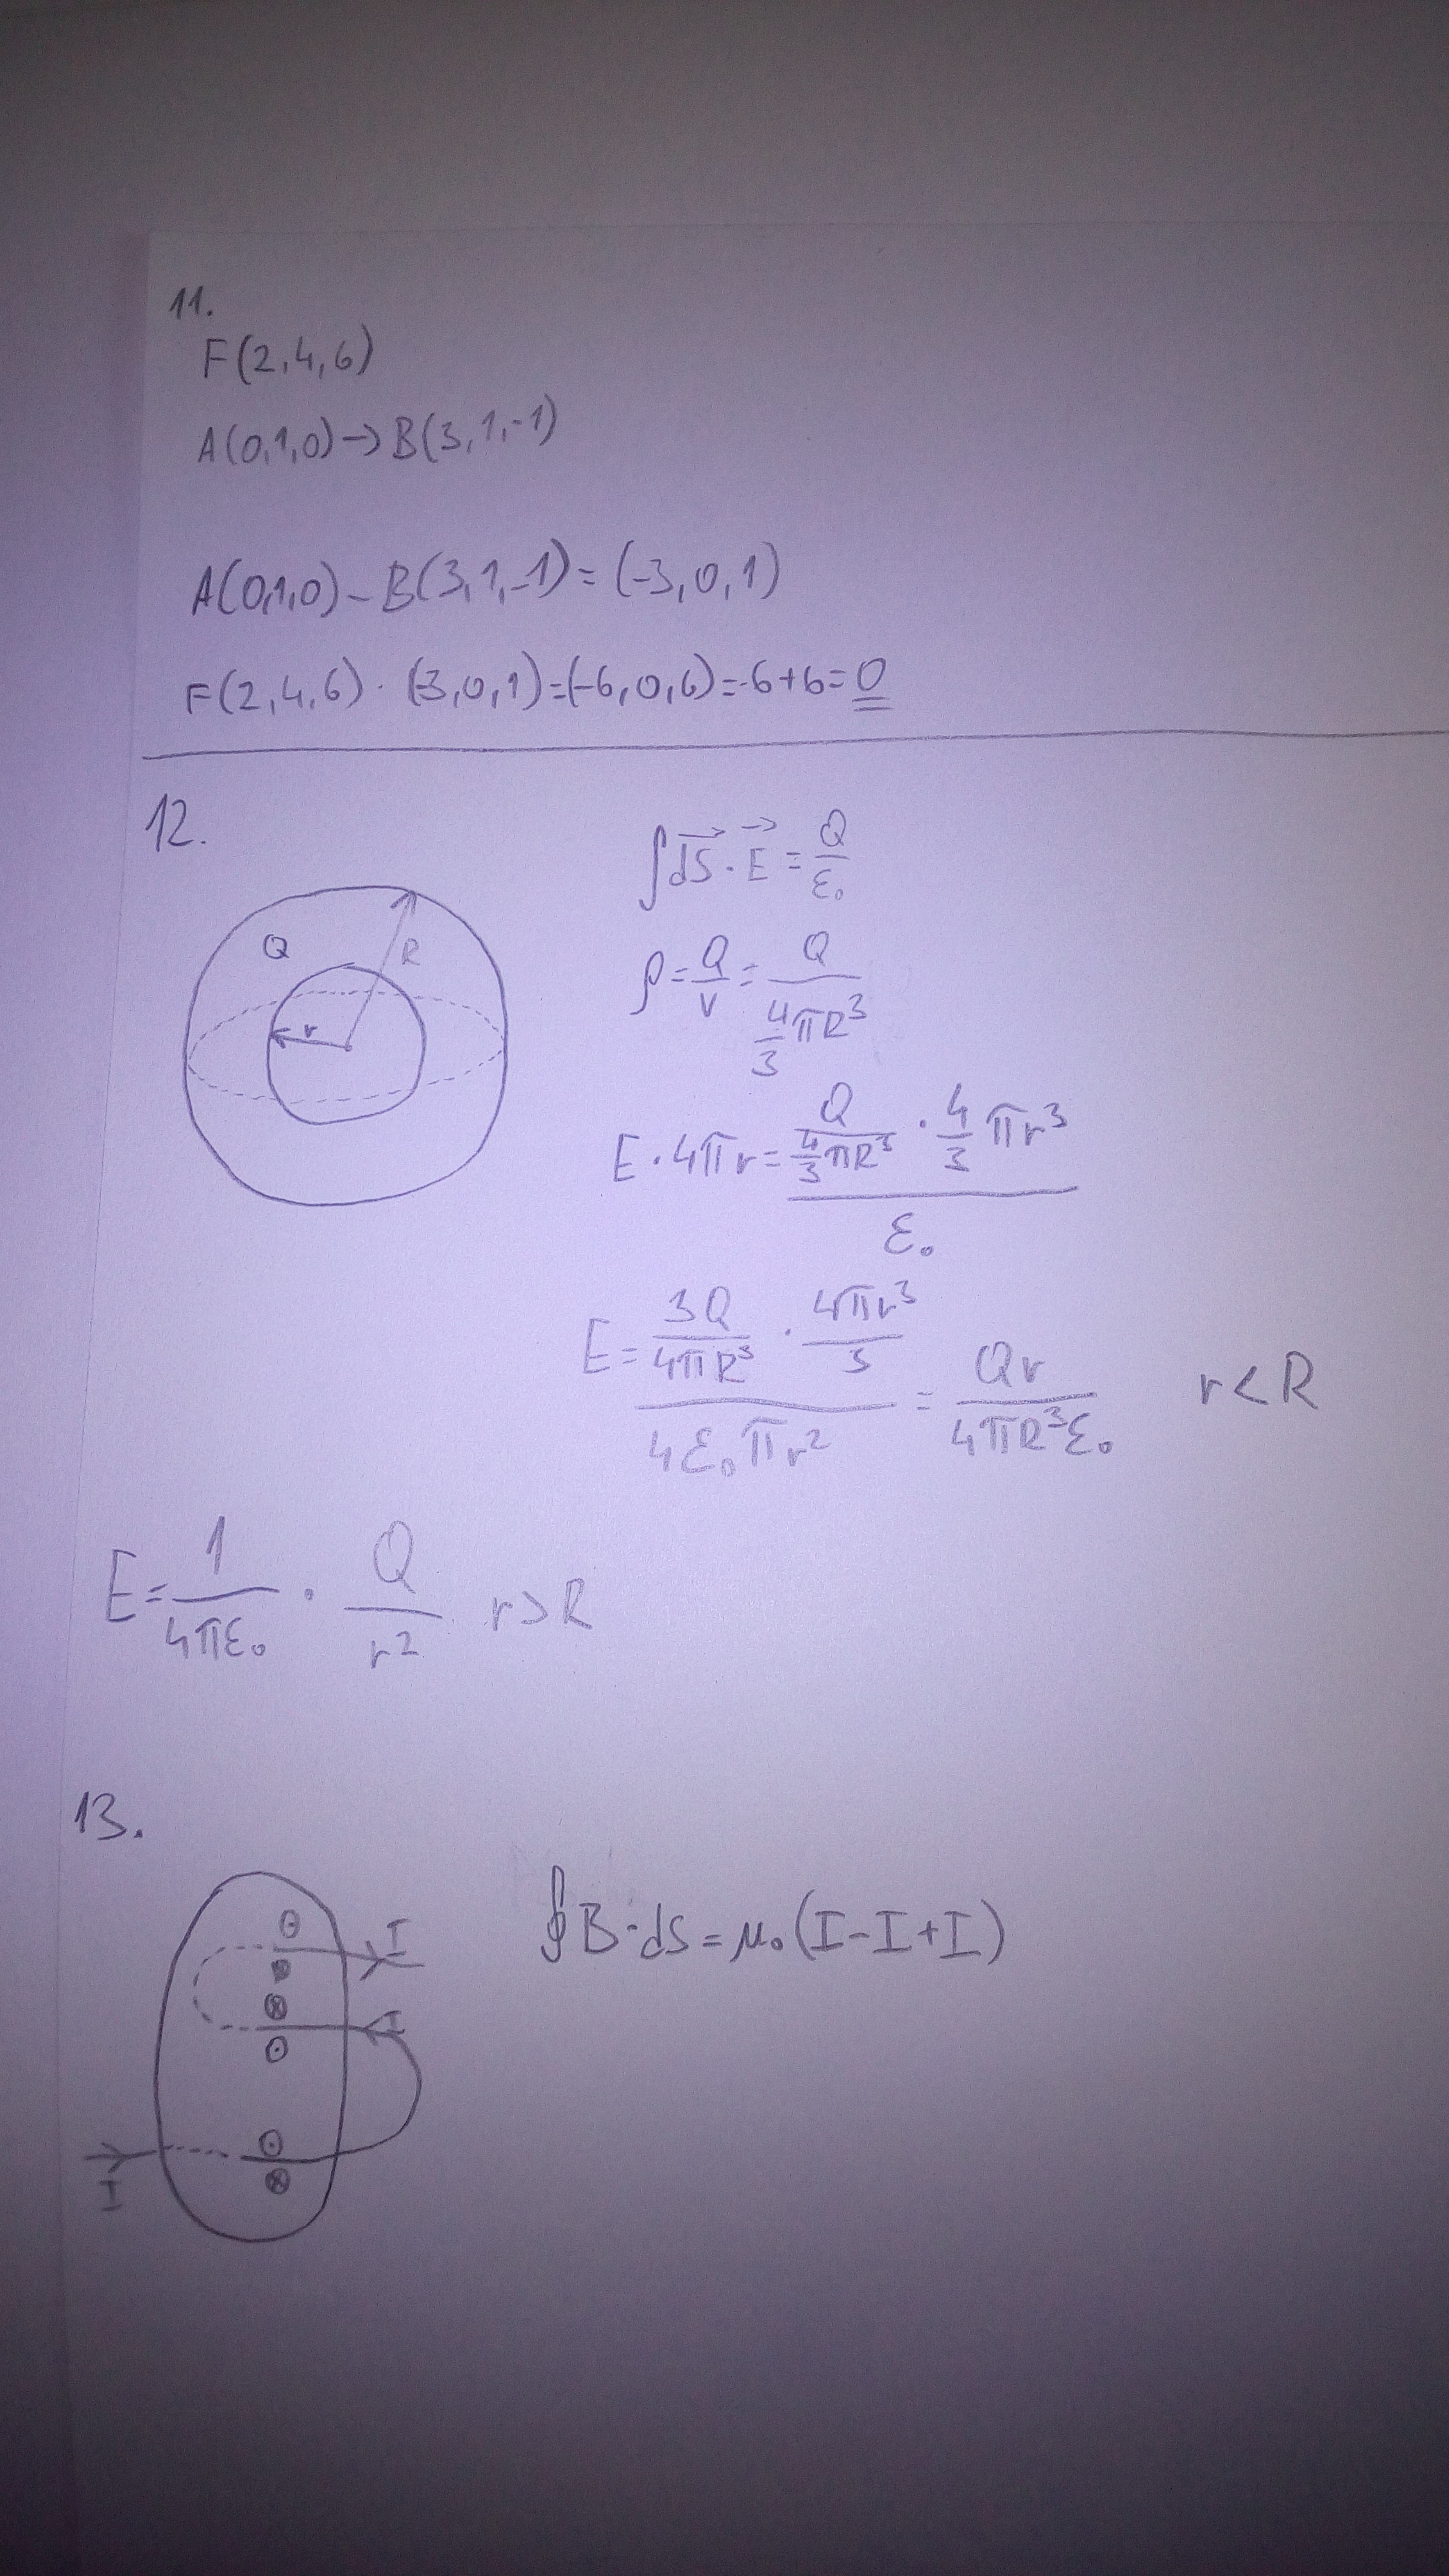 11.
F(2,4,6)
A(0,1,0)→B(3,1,-1)
A(0,1,0)-B(3,1,-1)=(-3,0,1)
F(2,4,6)·(-3,0,1)=(-6,0,6)=-6+6=0
12.
Q
R
r
∫dS⃗·E⃗=Q/ε₀
ρ=Q/V=Q/(4/3πR³)
E·4πr=(Q/(4/3πR³)·4/3πr³)/ε₀
E=(3Q/(4πR³)·4πr³/3)/(4ε₀πr²)=Qr/(4πR³ε₀) r<R
E=1/(4πε₀)·Q/r² r>R
13.
I
I
I
∮B·dS=μ₀(I-I+I)